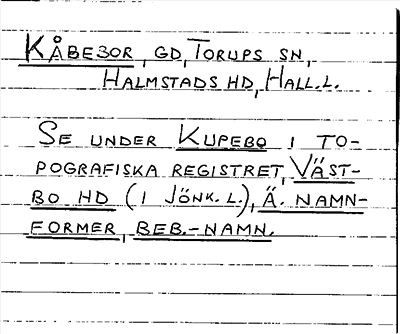 KÅBE3OR, GD, TORUPS SN,
HALMSTADS HD, HALL.L.
SE UNDER KUPEBO I TO-
POGRAFISKA REGISTRET, VÄST-
BO HD (I JÖNK.L.), Ä. NAMN-
FORMER, BEB.-NAMN.